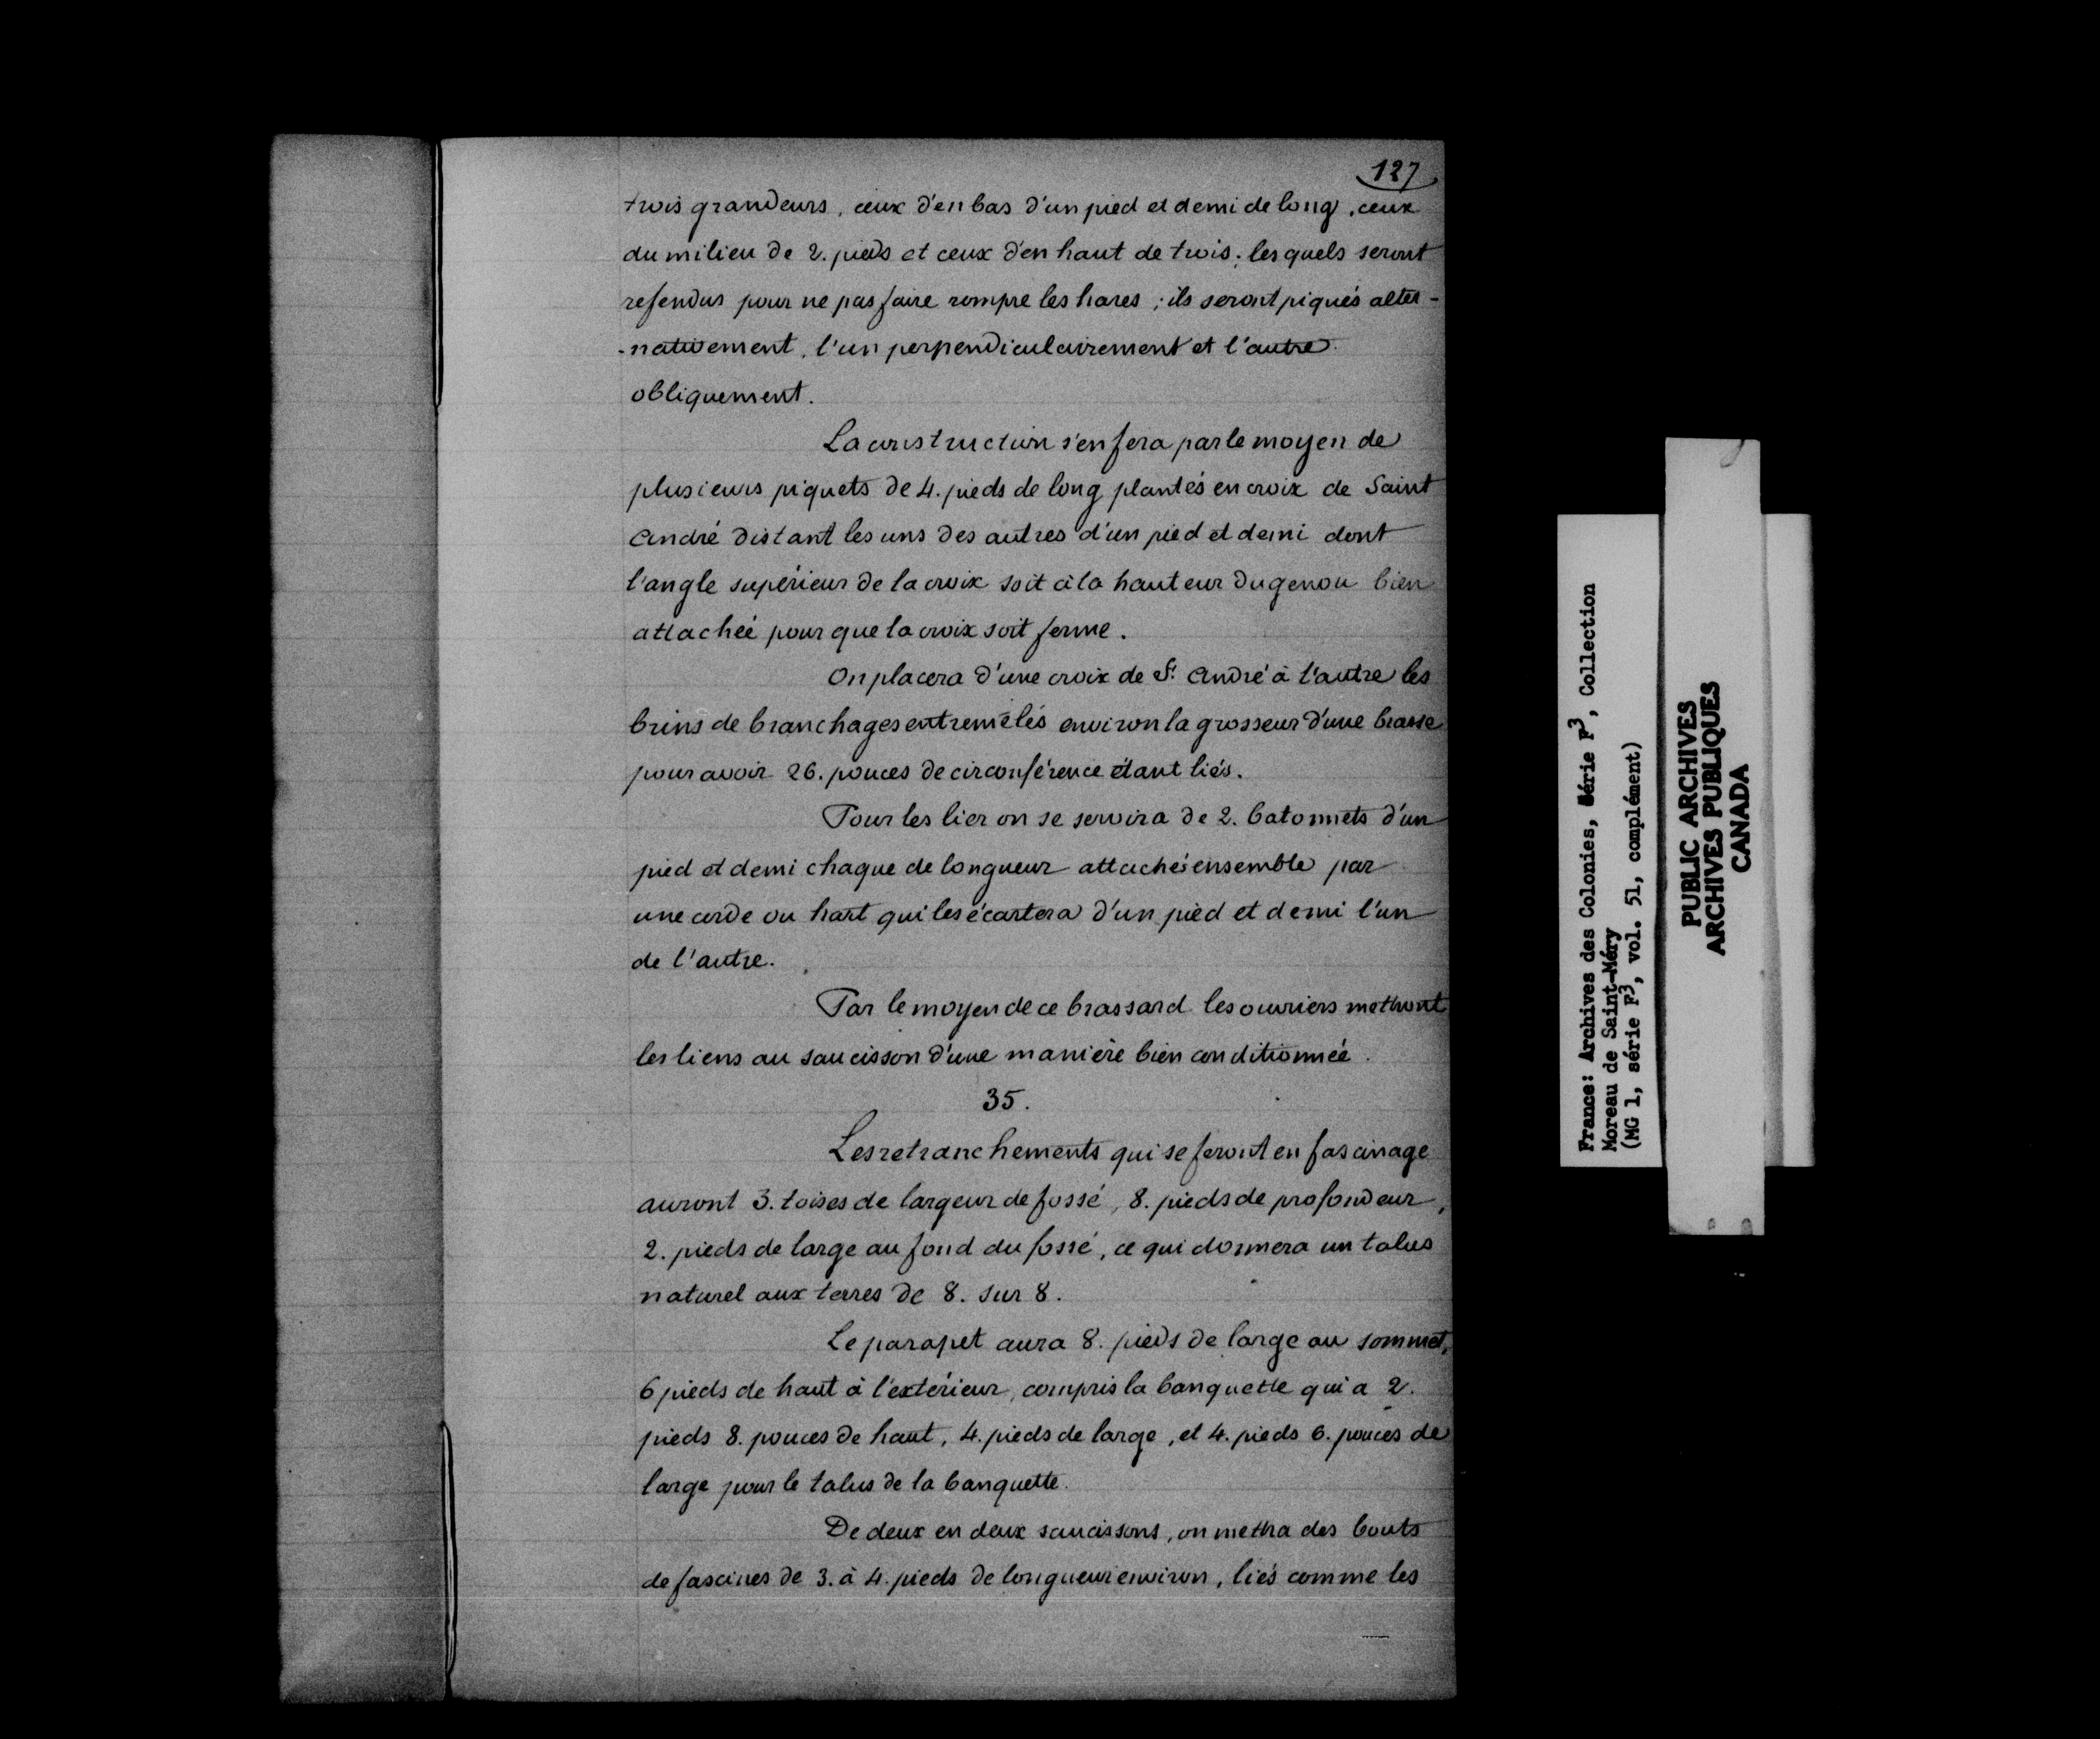 127
trois grandeurs, ceux d'en bas d'un pied et demi de long, ceux
du milieu de 2. pieds et ceux d'en haut de trois; les quels seront
refendus pour ne pas faire rompre les hares; ils seront piqués alter-
-nativement, l'un perpendiculairement et l'autre
obliquement.
La construction s'en fera par le moyen de
plusieurs piquets de 4. pieds de long plantés en croix de Saint
André distant les uns des autres d'un pied et demi dont
l'angle supérieur de la croix soit à la hauteur du genou bien
attachée pour que la croix soit ferme.
On placera d'une croix de St. André à l'autre les
brins de branchages entremêlés environ la grosseur d'une brasse
pour avoir 26. pouces de circonférence étant liés.
Pour les lier on se servira de 2. batonnets d'un
pied et demi chaque de longueur attachés ensemble par
une corde ou hart qui les écartera d'un pied et demi l'un
de l'autre.
Par le moyen de ce brassard les ouvriers mettront
les liens au saucisson d'une manière bien conditionnée.
35.
Les retranchements qui se feront en fascinage
auront 3. toises de largeur de fossé, 8. pieds de profondeur,
2. pieds de large au fond du fossé, ce qui donnera un talus
naturel aux terres de 8. sur 8.
Le parapet aura 8. pieds de large au sommet,
6 pieds de haut à l'extérieur, compris la banquette qui a 2.
pieds 8. pouces de haut, 4. pieds de large, et 4. pieds 6. pouces de
large pour le talus de la banquette.
De deux en deux saucissons, on mettra des bouts
de fascines de 3. à 4. pieds de longueur environ, liés comme les
France: Archives des Colonies, Série F3, Collection
Moreau de Saint-Méry
(MG 1, série F3, vol. 51, complément)
PUBLIC ARCHIVES
ARCHIVES PUBLIQUES
CANADA